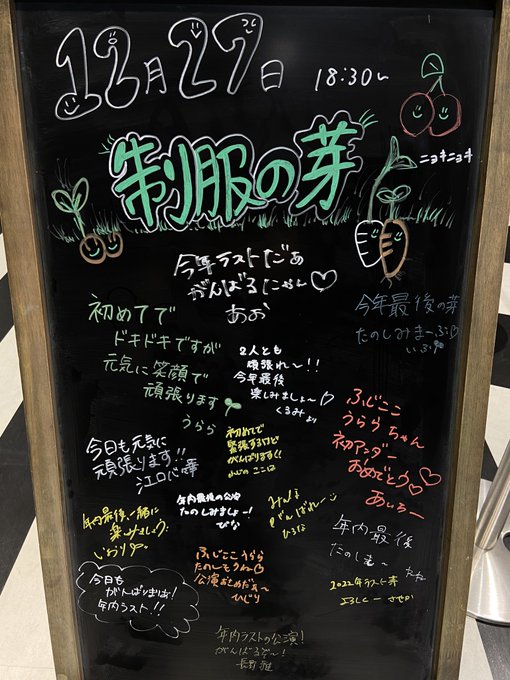 12月27日
18:30～
制服の芽
ニョキニョキ
今年ラストだぁ
がんばるにゃん♡
あお
今年最後の芽
たのしみまーぶ♡
いぶ
初めてで
ドキドキですが
元気に笑顔で
頑張ります
うらら
2人とも
頑張れ〜!!
今年最後
楽しみましょ〜♡
くるみより
ふじここ
うららちゃん
初アンダー
おめでとう♡
あいろー
今日も元気に
頑張ります!!
江口心華
初めてで
緊張するけど
がんばります!!
ここは
年内最後の公演
たのしみましょー!
ひな
みんな
がんばれー
年内最後一緒に
楽しみましょう
いのり
年内最後
たのしも〜
ふじここうらら
たのしもうね♡
公演おめだぁ〜
ひじり
2022年ラスト芽
今日も
がんばりまりあ!
年内ラスト!!
年内ラストの公演!
がんばるぞ〜!
長野雅